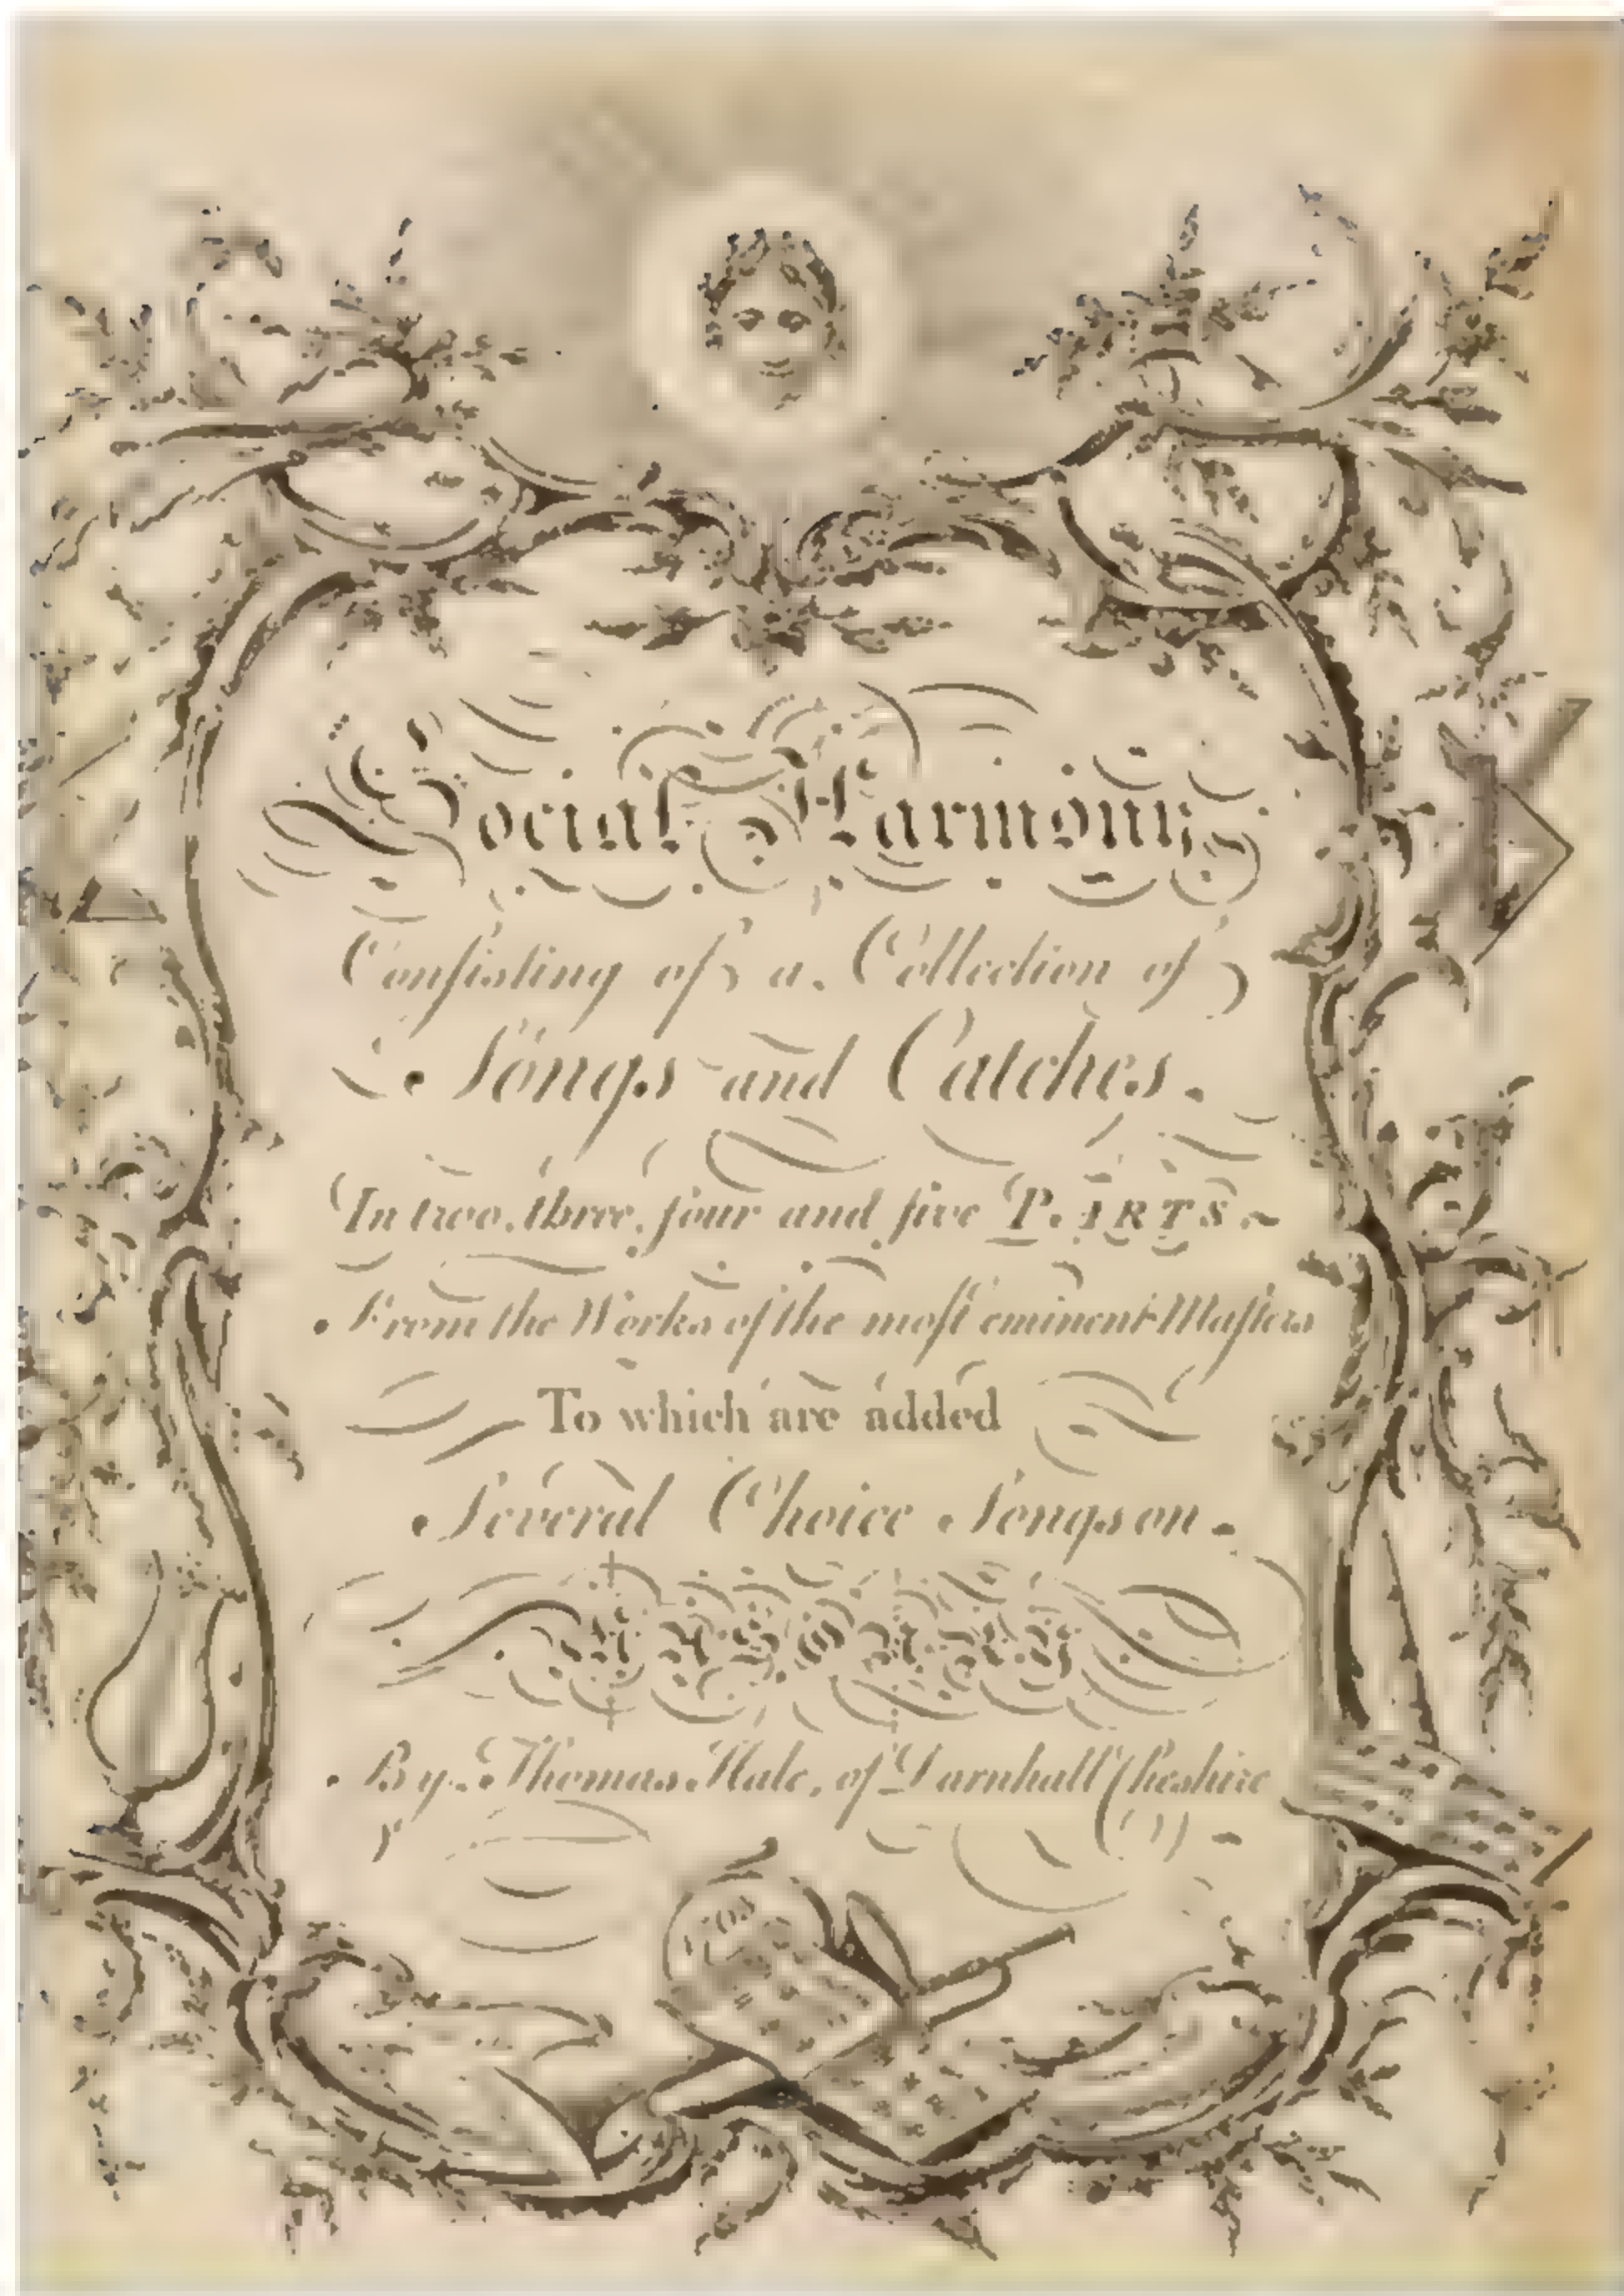 Social Harmony
Conſisting of a Collection of
Songs and Catches.
In two, three, four and five PARTS.
From the Works of the moſt eminent Maſters
To which are added
Several Choice Songs on
By Thomas Hale, of Darnhall Cheshire